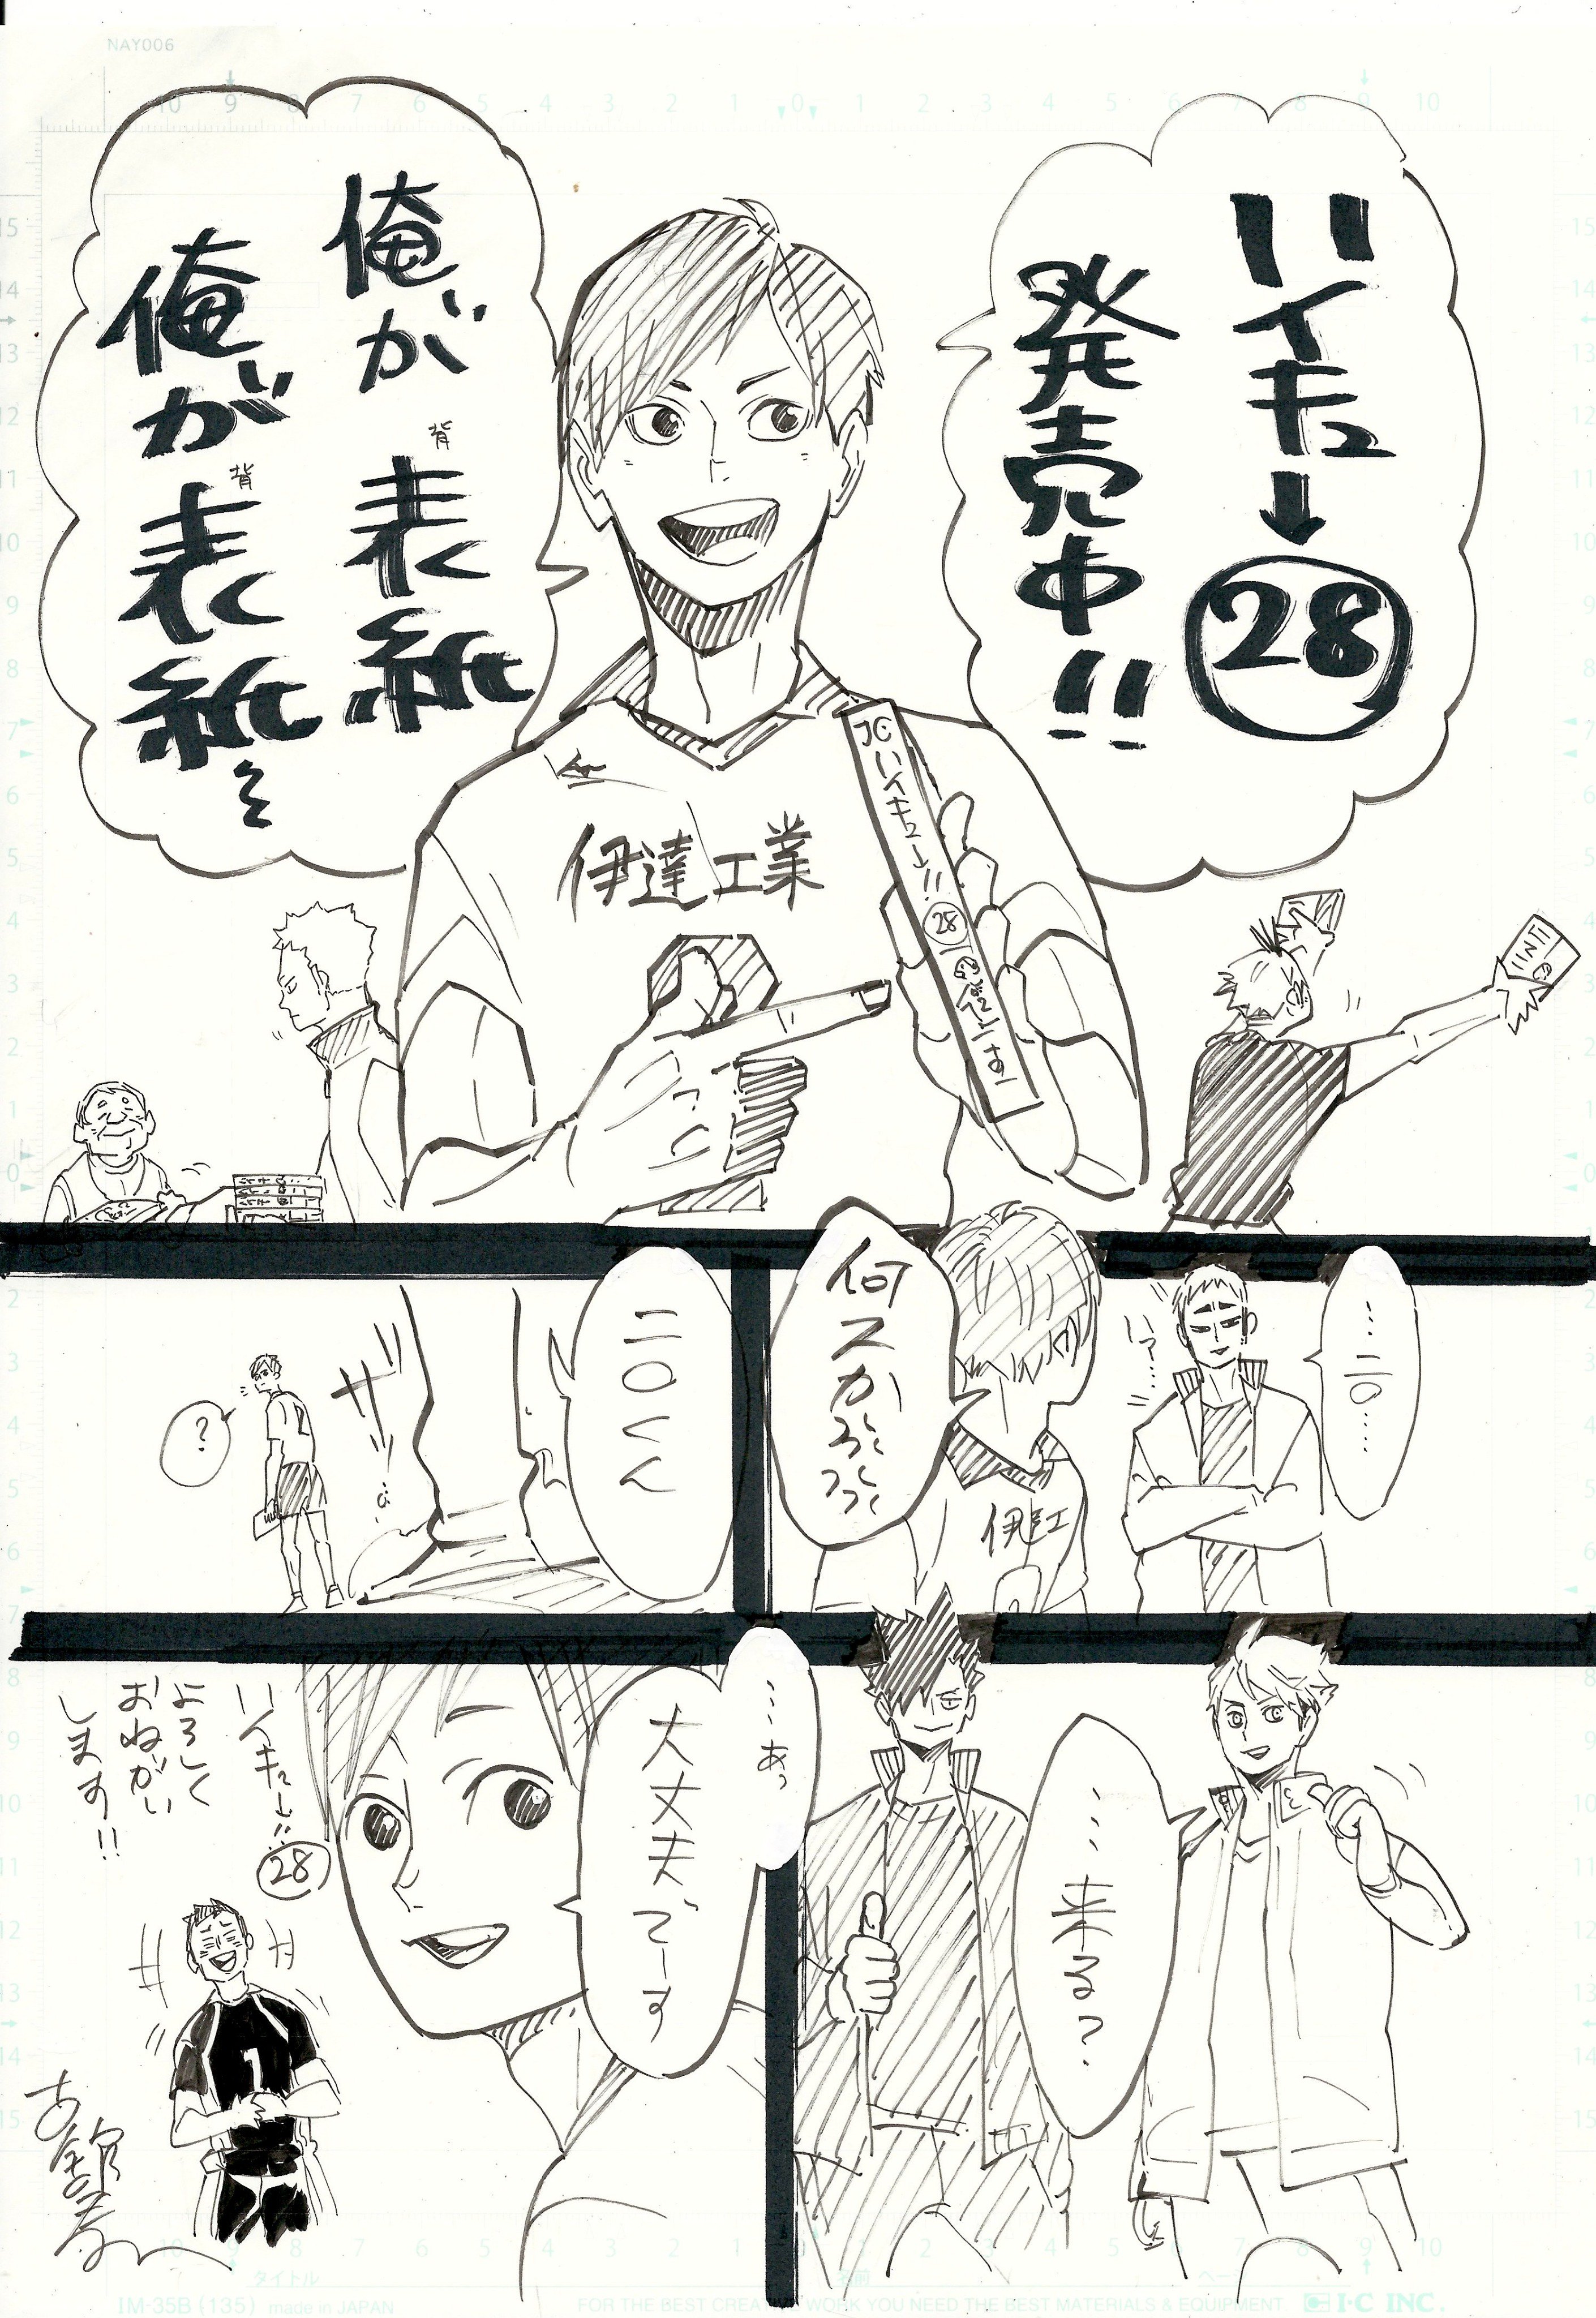 NAY006
ハイキュー
28
発売中!!
俺が背表紙
俺が背表紙〜
伊達工業
JC ハイキュー!! 28
……二口…
いや…
何スかぁ〜
二口くん
サッ
?
…来る?
…あっ
大丈夫でーす
1
ハイキュー!! 28
よろしく
おねがい
します!!
古舘春一
タイトル
IM-35B (135) made in JAPAN
FOR THE BEST CREATIVE WORK YOU NEED THE BEST MATERIALS & EQUIPMENT
I·C INC.